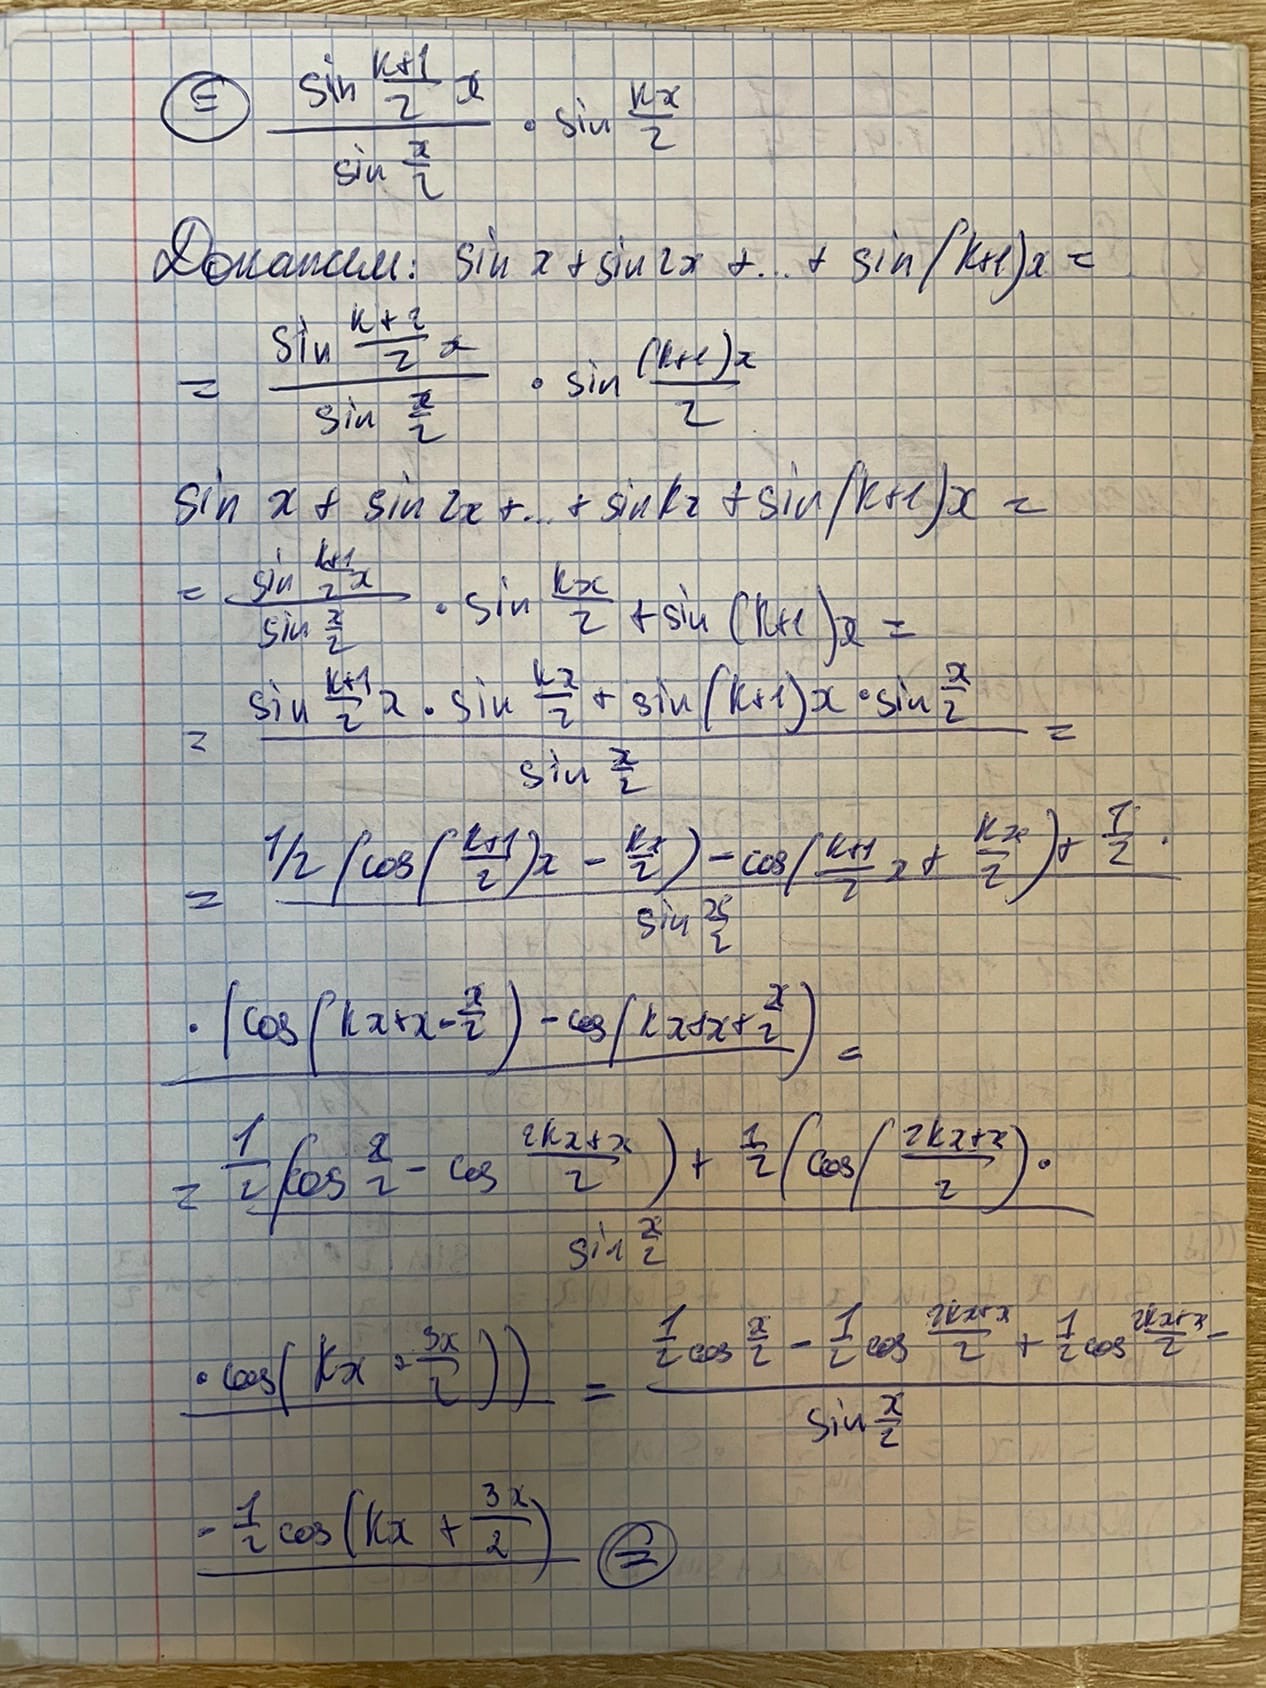 = sin (k+1)/2 x / sin x/2 · sin kx/2
Докажем: sin x + sin 2x + ... + sin(k+1)x =
= sin (k+2)/2 x / sin x/2 · sin (k+1)x/2
sin x + sin 2x + ... + sin kx + sin(k+1)x =
= sin (k+1)/2 x / sin x/2 · sin kx/2 + sin(k+1)x =
= sin (k+1)/2 x · sin kx/2 + sin(k+1)x · sin x/2 / sin x/2 =
= 1/2 (cos((k+1)/2)x - kx/2) - cos((k+1)/2 x + kx/2) + 1/2 · / sin x/2
· (cos(kx+x-x/2) - cos(kx+x+x/2)) =
= 1/2 (cos x/2 - cos (2kx+x)/2) + 1/2 (cos((2kx+x)/2) · / sin x/2
· cos(kx + 3x/2)) = 1/2 cos x/2 - 1/2 cos (2kx+x)/2 + 1/2 cos (2kx+x)/2 - / sin x/2
- 1/2 cos(kx + 3x/2) =